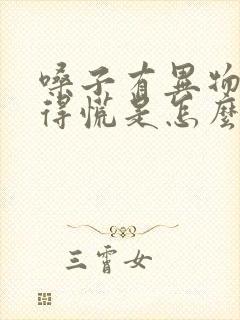 嗓子有異物
得慌是怎麼
三霄女